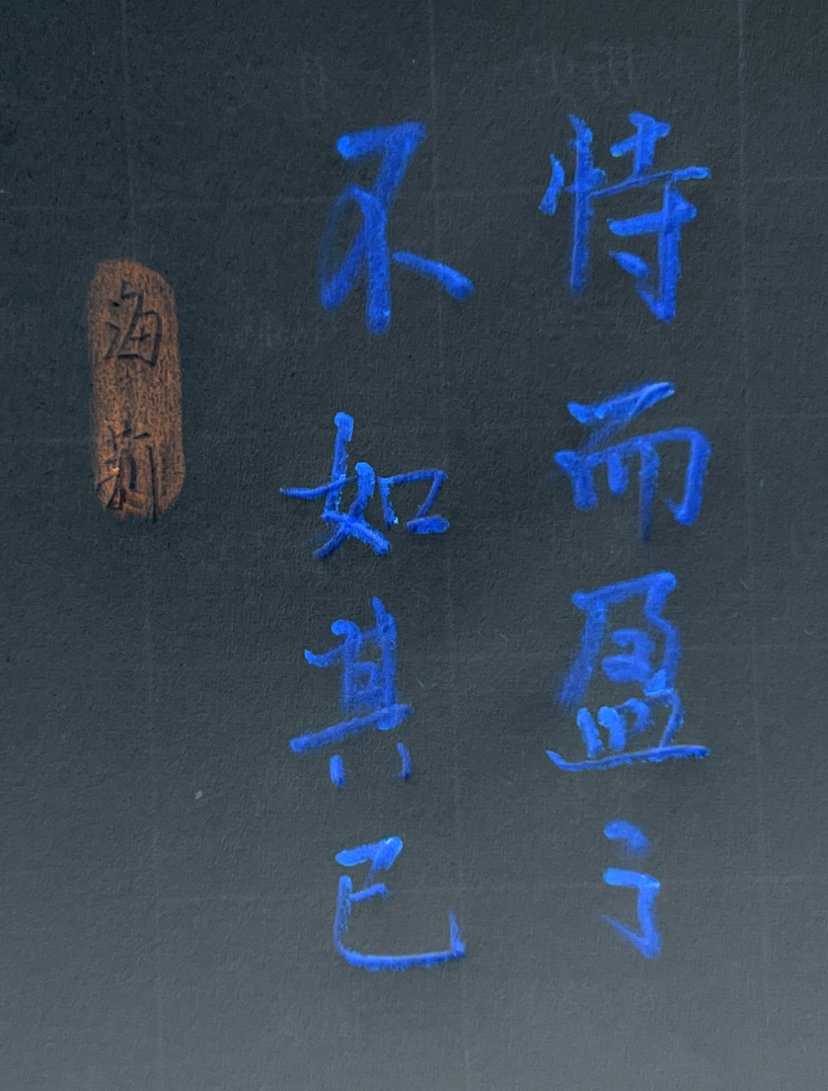 恃而盈之
不如其已
海莉